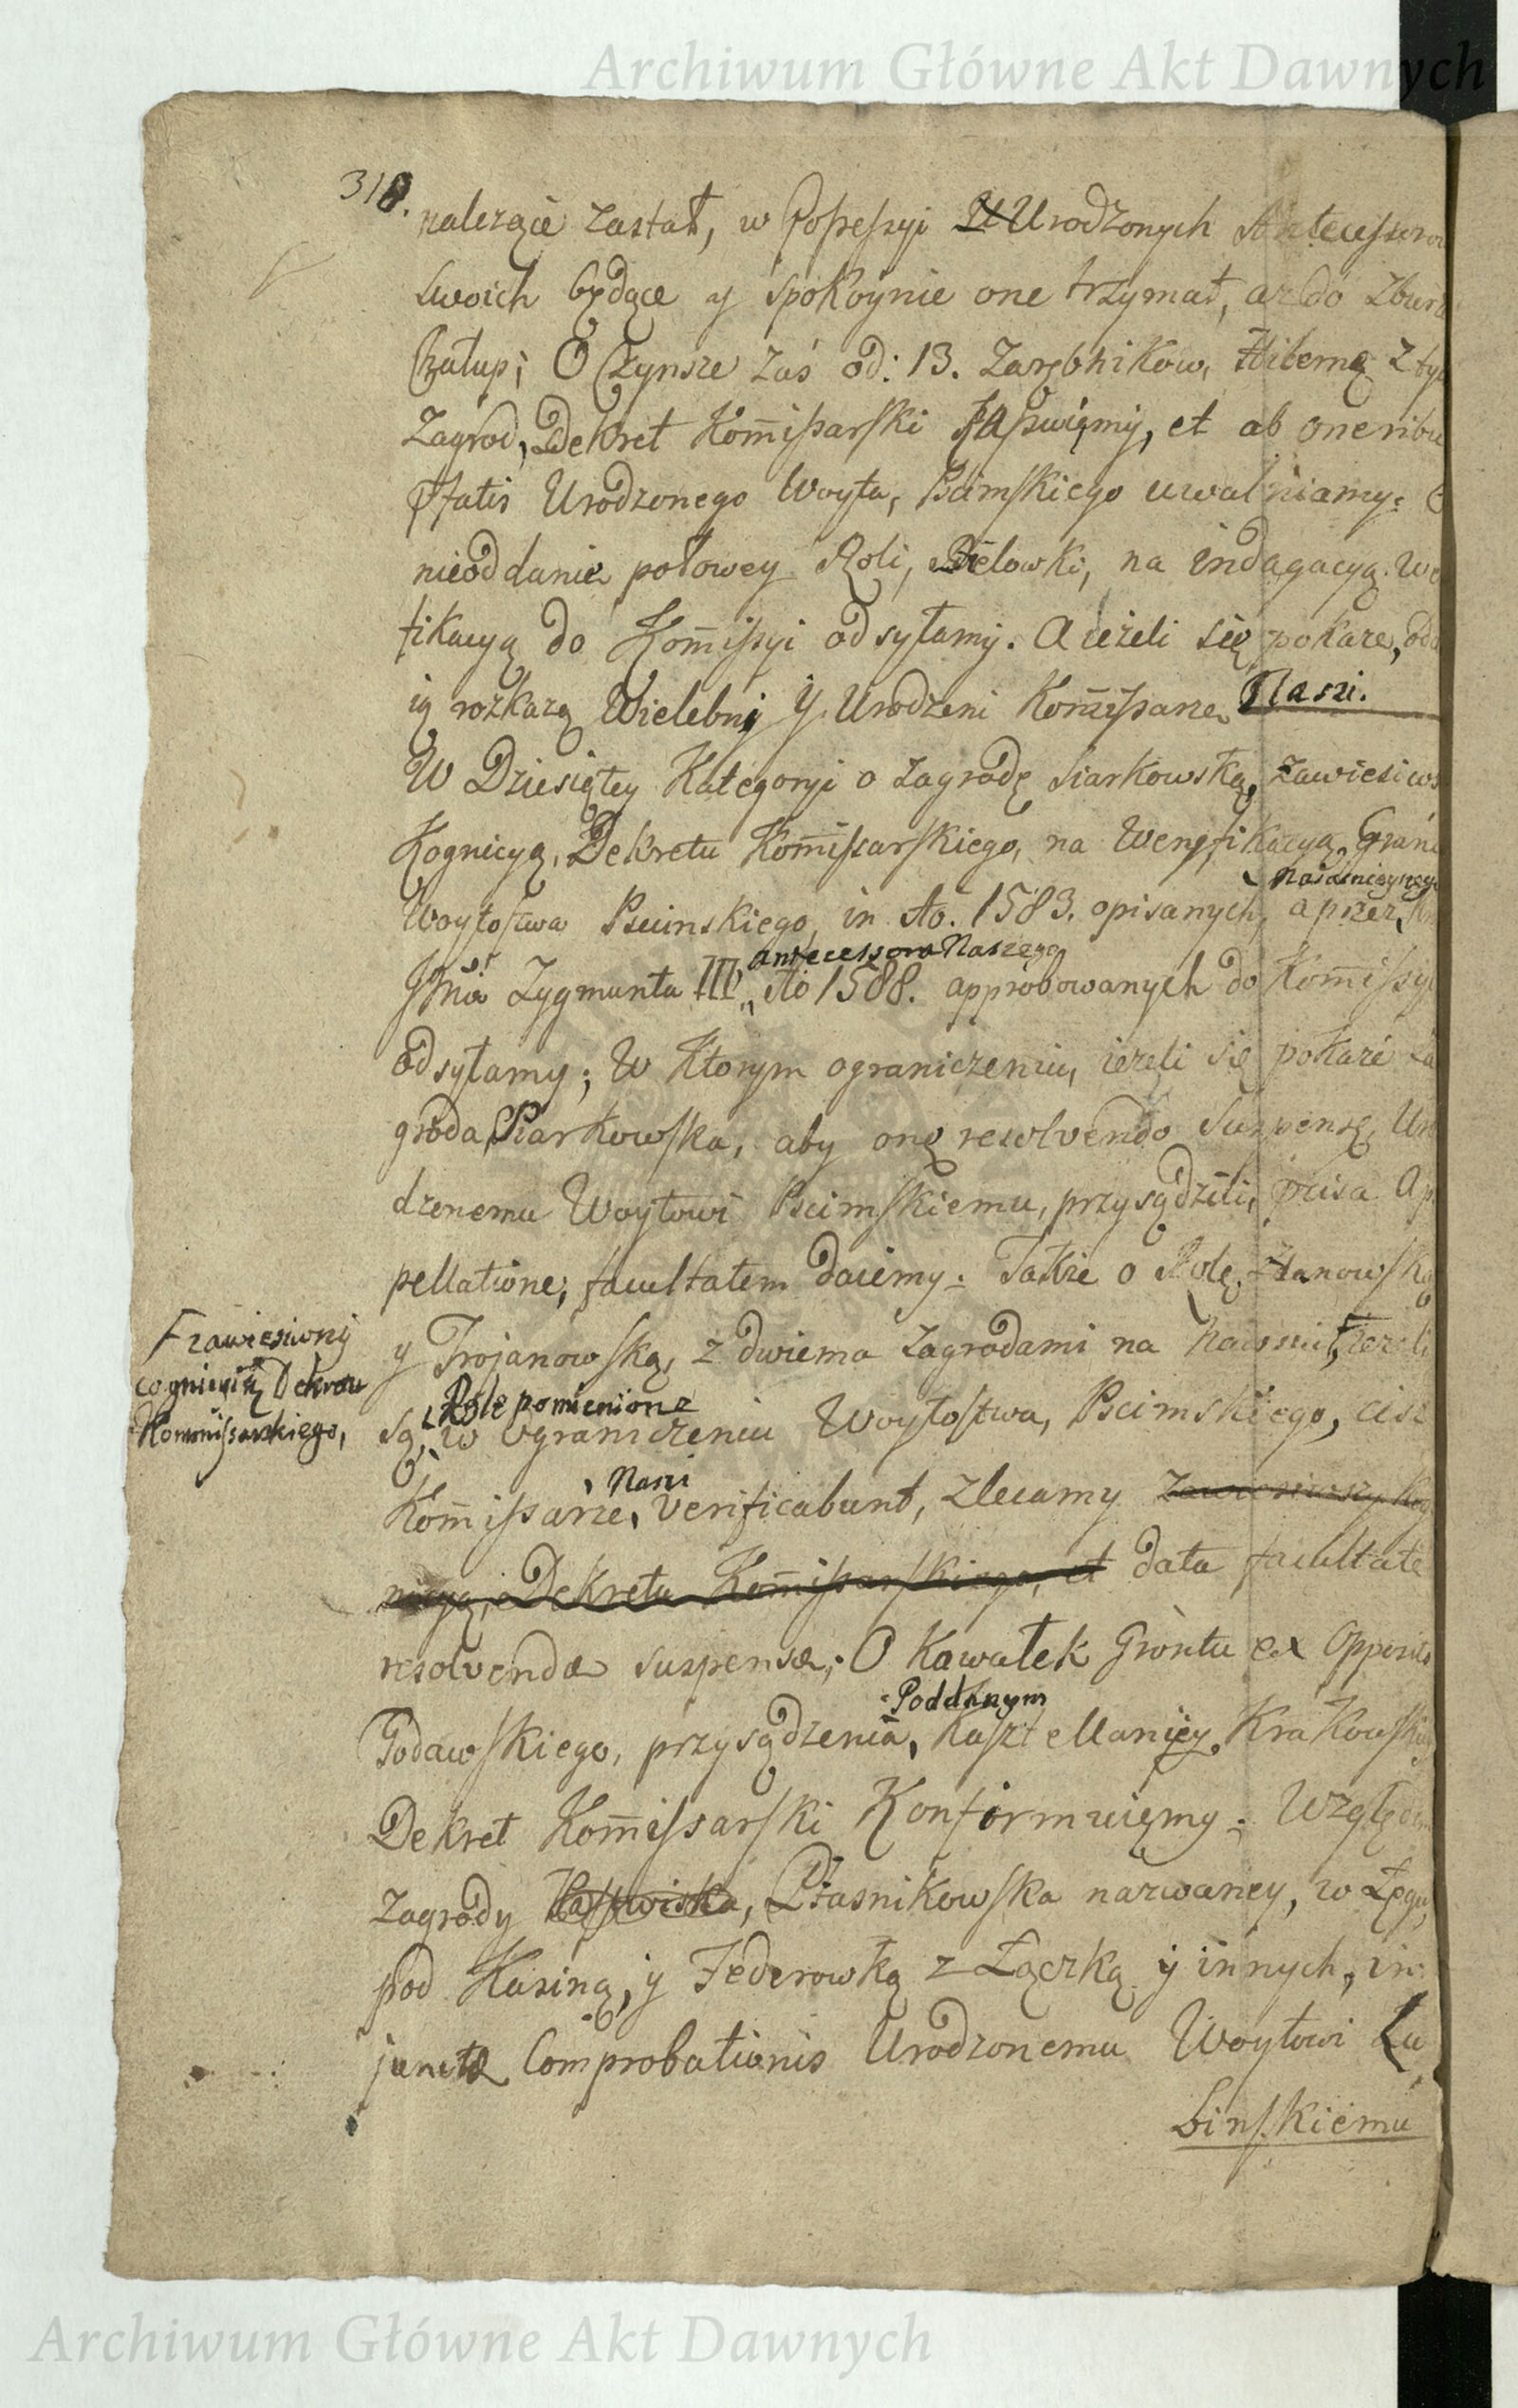 Archiwum Główne Akt Dawnych
318.
należące zastał, w Possessyi Urodzonych Antecessorow
swoich będące y spokoynie one trzymał, aż do zburz
Chałup; O Czynsze zaś od: 13. Zarębnikow, Hibernę z tyc
Zagrod, Dekret Kom̄issarski kassuiemy, et ab oneribu
pſtatis Urodzonego Woyta, Pscimskiego uwalniamy: O
nieoddanie połowey Roli, Bielowki, na indagacyą We
fikacyą do Kom̄issyi odsyłamy. A ieżeli się pokaże, odd
ią rozkażą Wielebni y Urodzeni Kom̄issarze Nasi.
W Dziesiątey Kategoryi o zagrodę Siarkowską, zawiesiws
Kognicyą, Dekretu Kom̄issarskiego, na Weryfikacyą Grani
Naiaśnieyszego
Woytostwa Pscimskiego, in Ao. 1583. opisanych, a przez
antecessora Naszego
Zygmunta III, Ao 1588. approbowanych do Kom̄issyi
odsyłamy; W Ktorym ograniczeniu, ieżeli się pokaże Za
groda, Siarkowska, aby onę resolvendo Suspensę, Uro
dzonemu Woytowi Pscimskiemu, przysądzili, pcisa Ap
pellatione, facultatem daiemy. Także o Rolę, Zdanowską
y Trojanowską, z dwiema Zagrodami na ieżeli
Ϝ zawiesiwszy
cognicyią Dekretu
Kommissarskiego,
Role pomienione
są, w ograniczeniu Woytostwa, Pscimskiego, ciż
Nasi
Kom̄issarze, verificabunt, zlecamy zawiesiwszy Kog
nicyą, Dekretu Kom̄issarskiego, et data facultate
resolvendæ suspensæ; O Kawałek Grontu ex Opposito
Poddanym
Godawskiego, przysądzenia, Kasztellaniey Krakowskiey
Dekret Kom̄issarski Konfirmuięmy; Względem
Zagrody, Ptasnikowska nazwaney, w Łęgu,
pod Kasiną, y Federowką z Łączką y innych, in
junctæ Comprobationis Urodzonemu Woytowi Lu
binskiemu
Archiwum Główne Akt Dawnych